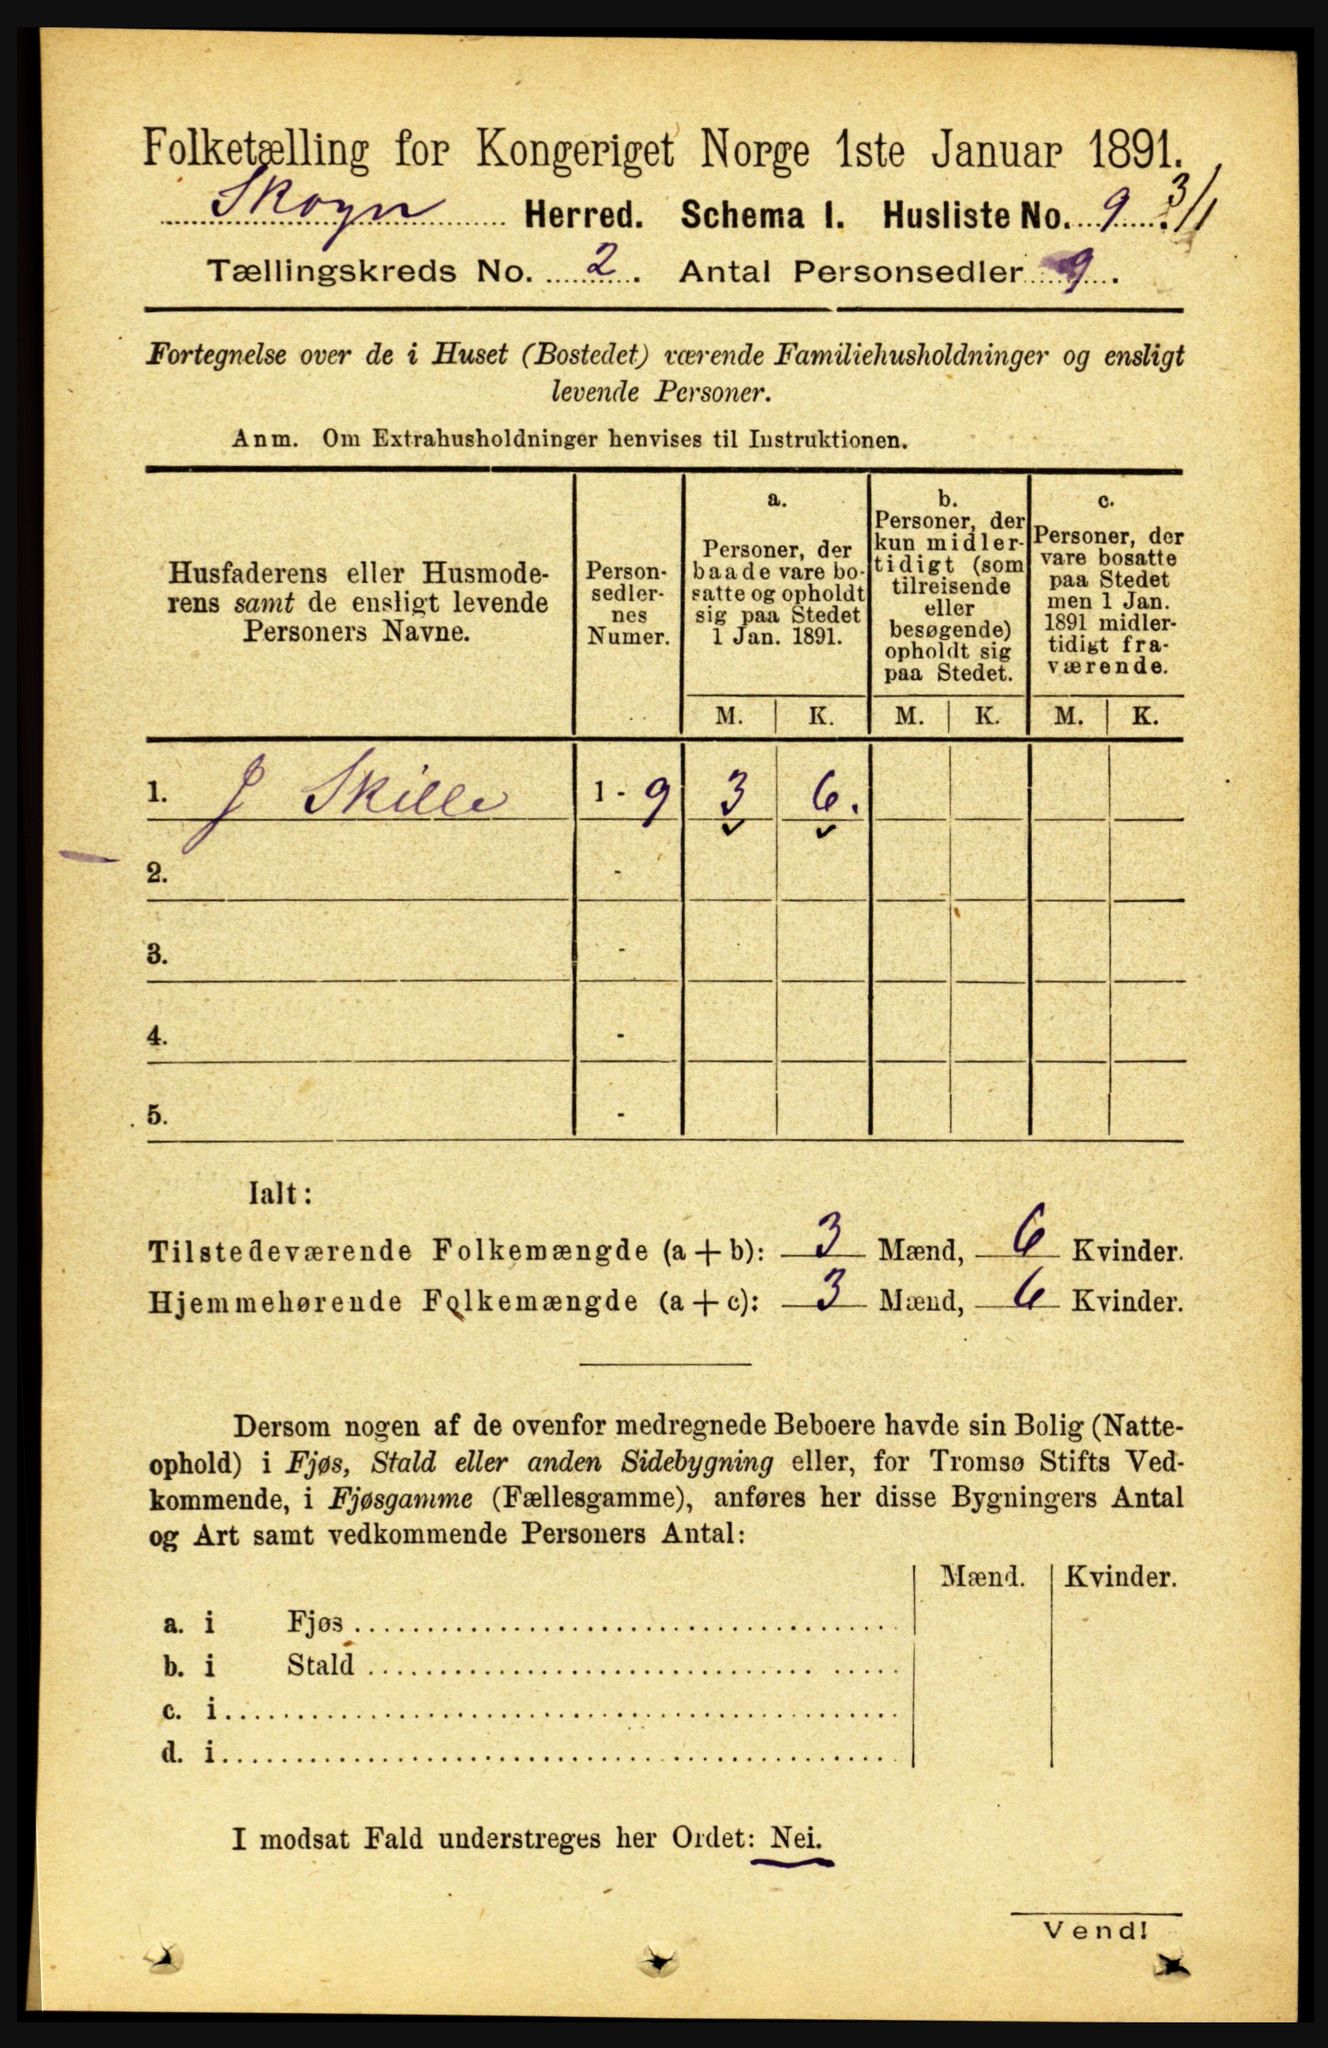 Folketælling for Kongeriget Norge 1ste Januar 1891.
Skogn Herred. Schema I. Husliste No. 9. 3/1
Tællingskreds No. 2. Antal Personsedler 9.
Fortegnelse over de i Huset (Bostedet) værende Familiehusholdninger og ensligt
levende Personer.
Anm. Om Extrahusholdninger henvises til Instruktionen.
Husfaderens eller Husmode-
rens samt de ensligt levende
Personers Navne.
Person-
sedler-
nes
Numer.
a.
Personer, der
baade vare bo-
satte og opholdt
sig paa Stedet
1 Jan. 1891.
b.
Personer, der
kun midler-
tidigt (som
tilreisende
eller
besøgende)
opholdt sig
paa Stedet.
c.
Personer, der
vare bosatte
paa Stedet
men 1 Jan.
1891 midler-
tidigt fra-
værende.
M. K. M. K. M. K.
1. J Skille 1 - 9 3 6.
2. -
3. -
4. -
5. -
Ialt:
Tilstedeværende Folkemængde (a + b): 3 Mænd, 6 Kvinder.
Hjemmehørende Folkemængde (a + c): 3 Mænd, 6 Kvinder.
Dersom nogen af de ovenfor medregnede Beboere havde sin Bolig (Natte-
ophold) i Fjøs, Stald eller anden Sidebygning eller, for Tromsø Stifts Ved-
kommende, i Fjøsgamme (Fællesgamme), anføres her disse Bygningers Antal
og Art samt vedkommende Personers Antal:
Mænd. Kvinder.
a. i Fjøs
b. i Stald
c. i
d. i
I modsat Fald understreges her Ordet: Nei.
Vend!